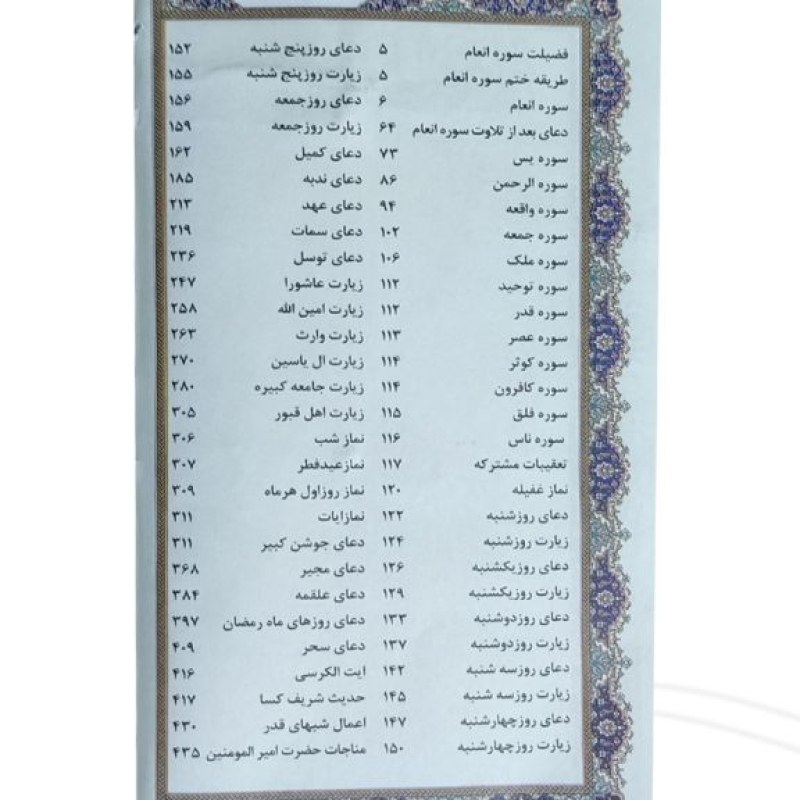 فضیلت سوره انعام ۵
طریقه ختم سوره انعام ۵
سوره انعام ۶
دعای بعد از تلاوت سوره انعام ۶۴
سوره یس ۷۳
سوره الرحمن ۸۶
سوره واقعه ۹۴
سوره جمعه ۱۰۲
سوره ملک ۱۰۶
سوره توحید ۱۱۲
سوره قدر ۱۱۲
سوره عصر ۱۱۳
سوره کوثر ۱۱۴
سوره کافرون ۱۱۴
سوره فلق ۱۱۵
سوره ناس ۱۱۶
تعقیبات مشترکه ۱۱۷
نماز غفیله ۱۲۰
دعای روزشنبه ۱۲۲
زیارت روزشنبه ۱۲۴
دعای روزیکشنبه ۱۲۶
زیارت روزیکشنبه ۱۲۹
دعای روزدوشنبه ۱۳۳
زیارت روزدوشنبه ۱۳۷
دعای روزسه شنبه ۱۴۲
زیارت روزسه شنبه ۱۴۵
دعای روزچهارشنبه ۱۴۷
زیارت روزچهارشنبه ۱۵۰
دعای روزپنج شنبه ۱۵۲
زیارت روزپنج شنبه ۱۵۵
دعای روزجمعه ۱۵۶
زیارت روزجمعه ۱۵۹
دعای کمیل ۱۶۲
دعای ندبه ۱۸۵
دعای عهد ۲۱۳
دعای سمات ۲۱۹
دعای توسل ۲۳۶
زیارت عاشورا ۲۴۷
زیارت امین الله ۲۵۸
زیارت وارث ۲۶۳
زیارت ال یاسین ۲۷۰
زیارت جامعه کبیره ۲۸۰
زیارت اهل قبور ۳۰۵
نماز شب ۳۰۶
نمازعیدفطر ۳۰۷
نماز روزاول هرماه ۳۰۹
نمازایات ۳۱۱
دعای جوشن کبیر ۳۱۱
دعای مجیر ۳۶۸
دعای علقمه ۳۸۴
دعای روزهای ماه رمضان ۳۹۷
دعای سحر ۴۰۹
ایت الکرسی ۴۱۶
حدیث شریف کسا ۴۱۷
اعمال شبهای قدر ۴۳۰
مناجات حضرت امیر المومنین ۴۳۵